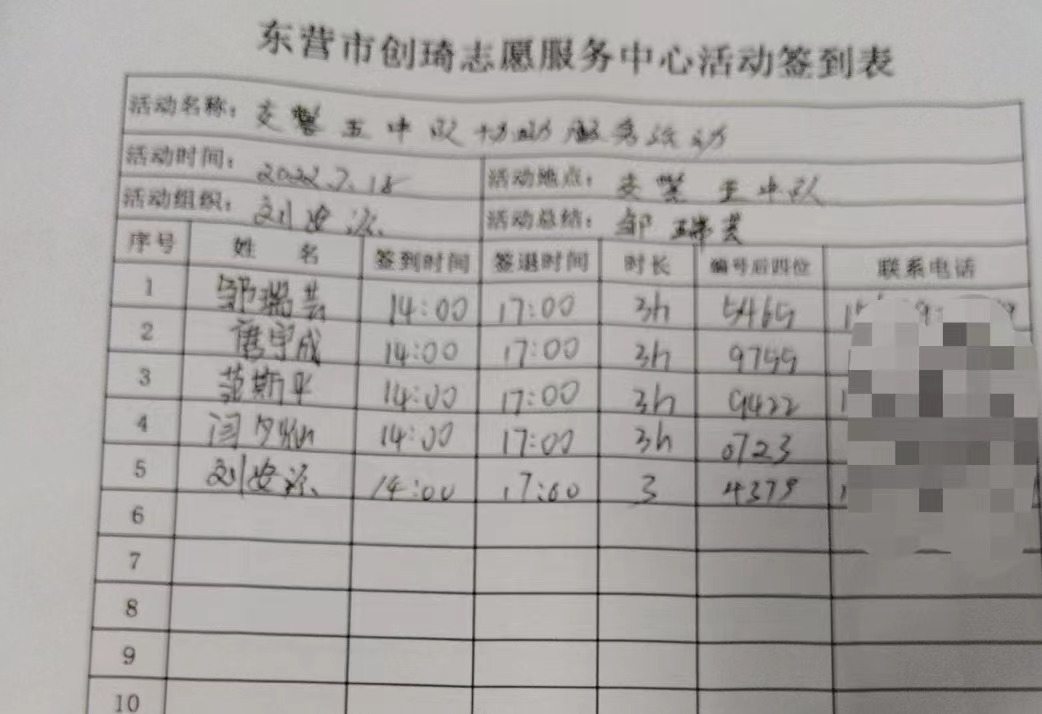 东营市创琦志愿服务中心活动签到表
活动名称：交警五中队协助服务活动
活动时间：2022.7.18 活动地点：交警五中队
活动组织：刘安源 活动总结：邹瑞芸
序号 姓 名 签到时间 签退时间 时长 编号后四位 联系电话
1 邹瑞芸 14:00 17:00 3h 5465
2 唐宇成 14:00 17:00 3h 9759
3 范斯平 14:00 17:00 3h 9422
4 闫夕 14:00 17:00 3h 0723
5 刘安源 14:00 17:00 3 4379
6
7
8
9
10